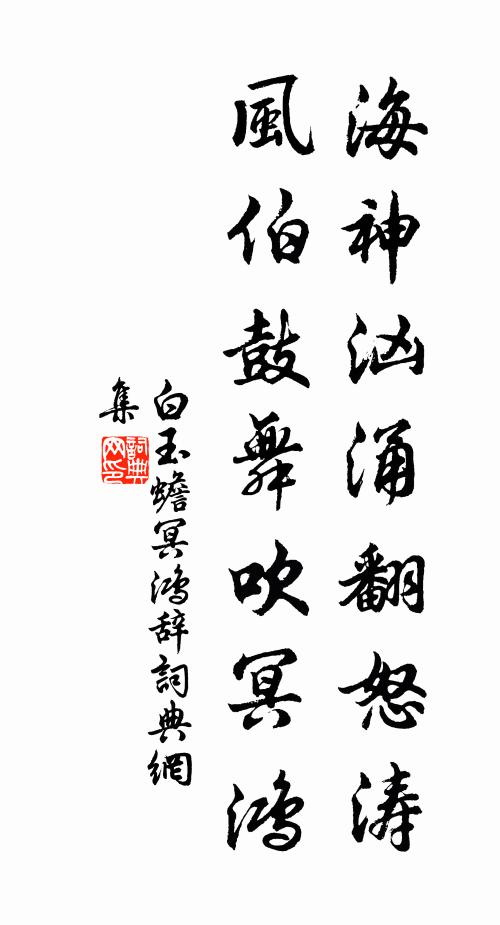 海神汹涌翻怒涛
風伯鼓舞吹冥鸿
白玉蟾冥鸿辞詞典網
集
詞典网印